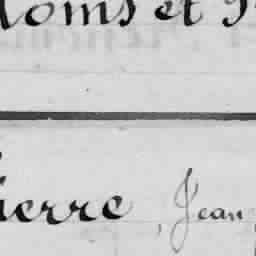 Noms et P
Pierre, Jean